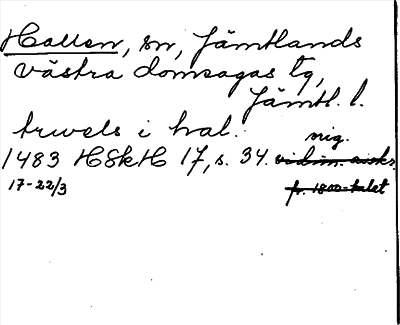 Hallen, sn, Jämtlands
västra domsagas tg,
Jämtl. l.
trwels i hal.
nig.
1483 HSkH 17, s. 34. vidim. avskr.
17-22/3 fr. 1800-talet